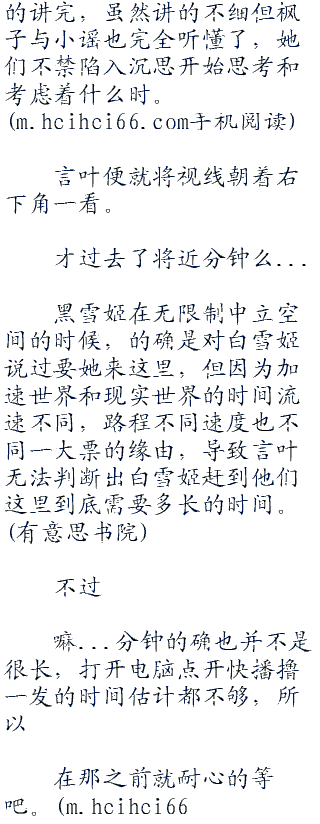 的讲完，虽然讲的不细但枫
子与小谣也完全听懂了，她
们不禁陷入沉思开始思考和
考虑着什么时。
(m.hcihci66.com手机阅读)
言叶便就将视线朝着右
下角一看。
才过去了将近分钟么...
黑雪姬在无限制中立空
间的时候，的确是对白雪姬
说过要她来这里，但因为加
速世界和现实世界的时间流
速不同，路程不同速度也不
同一大票的缘由，导致言叶
无法判断出白雪姬赶到他们
这里到底需要多长的时间。
(有意思书院)
不过
嘛...分钟的确也并不是
很长，打开电脑点开快播撸
一发的时间估计都不够，所
以
在那之前就耐心的等
吧。(m.hcihci66